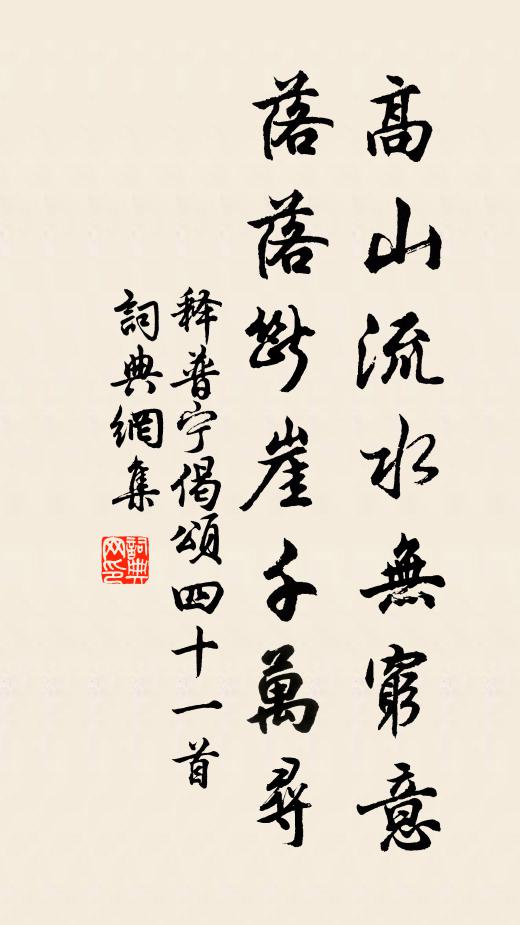 高山流水無窮意
落落断崖千萬尋
释普宁偈頌四十一首
詞典網集
詞典网印